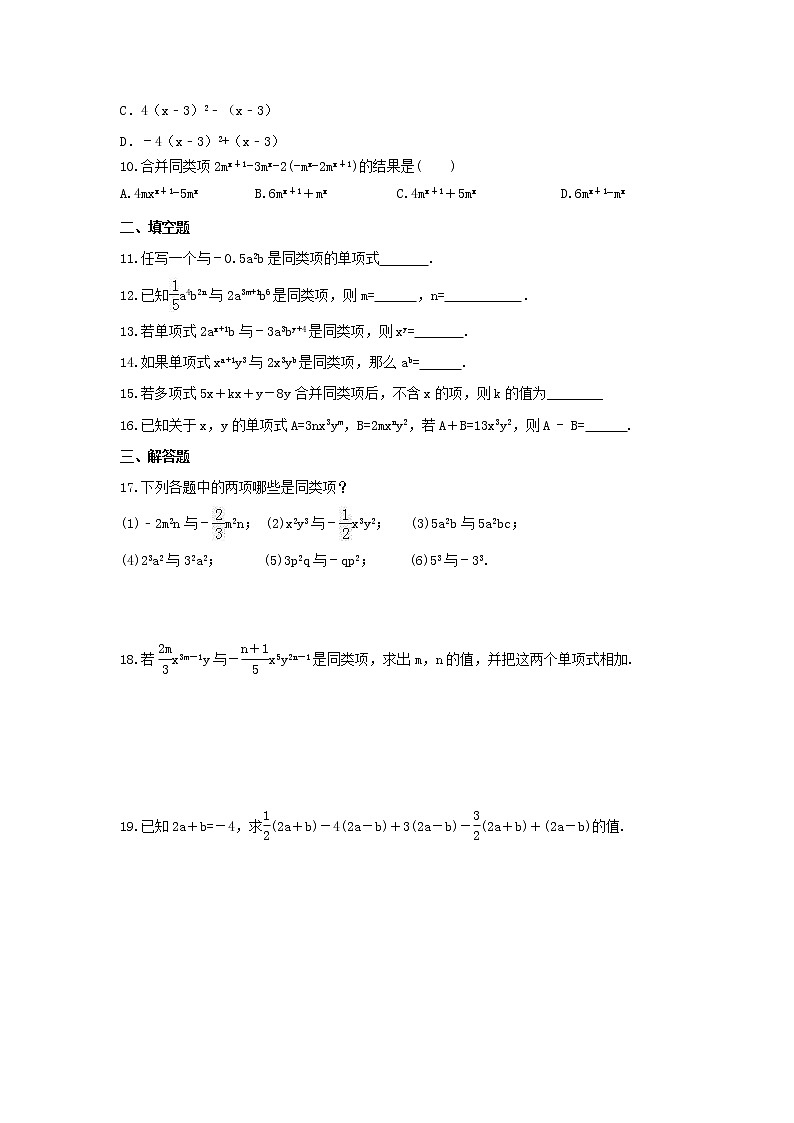 C. 4(x﹣3)²﹣(x﹣3)
D. ﹣4(x﹣3)²+(x﹣3)
10.合并同类项 2mˣ⁺¹-3mˣ-2(-mˣ-2mˣ⁺¹)的结果是(  )
A.4mxˣ⁺¹-5mˣ B.6mˣ⁺¹+mˣ C.4mˣ⁺¹+5mˣ D.6mˣ⁺¹-mˣ
二、填空题
11.任写一个与﹣0.5a²b 是同类项的单项式_______.
12.已知1/5a⁴b²ⁿ与 2a³ᵐ⁺¹b⁶是同类项,则 m=______,n=___________.
13.若单项式 2aˣ⁺¹b 与﹣3a³bʸ⁺⁴是同类项,则 xʸ=_______.
14.如果单项式 xᵃ⁺¹y³与 2x³yᵇ是同类项,那么 aᵇ=______.
15.若多项式 5x+kx+y-8y 合并同类项后,不含 x 的项,则 k 的值为________
16.已知关于 x,y 的单项式 A=3nx³yᵐ,B=2mxⁿy²,若 A+B=13x³y²,则 A - B=______.
三、解答题
17.下列各题中的两项哪些是同类项?
(1)﹣2m²n 与-2/3m²n; (2)x²y³与-1/2x³y²; (3)5a²b 与 5a²bc;
(4)2³a²与 3²a²; (5)3p²q 与﹣qp²; (6)5³与﹣3³.
18.若 2m/3x³ᵐ⁻¹y 与-n+1/5x⁵y²ⁿ⁻¹是同类项,求出 m,n 的值,并把这两个单项式相加.
19.已知 2a+b=-4,求1/2(2a+b)-4(2a-b)+3(2a-b)-3/2(2a+b)+(2a-b)的值.